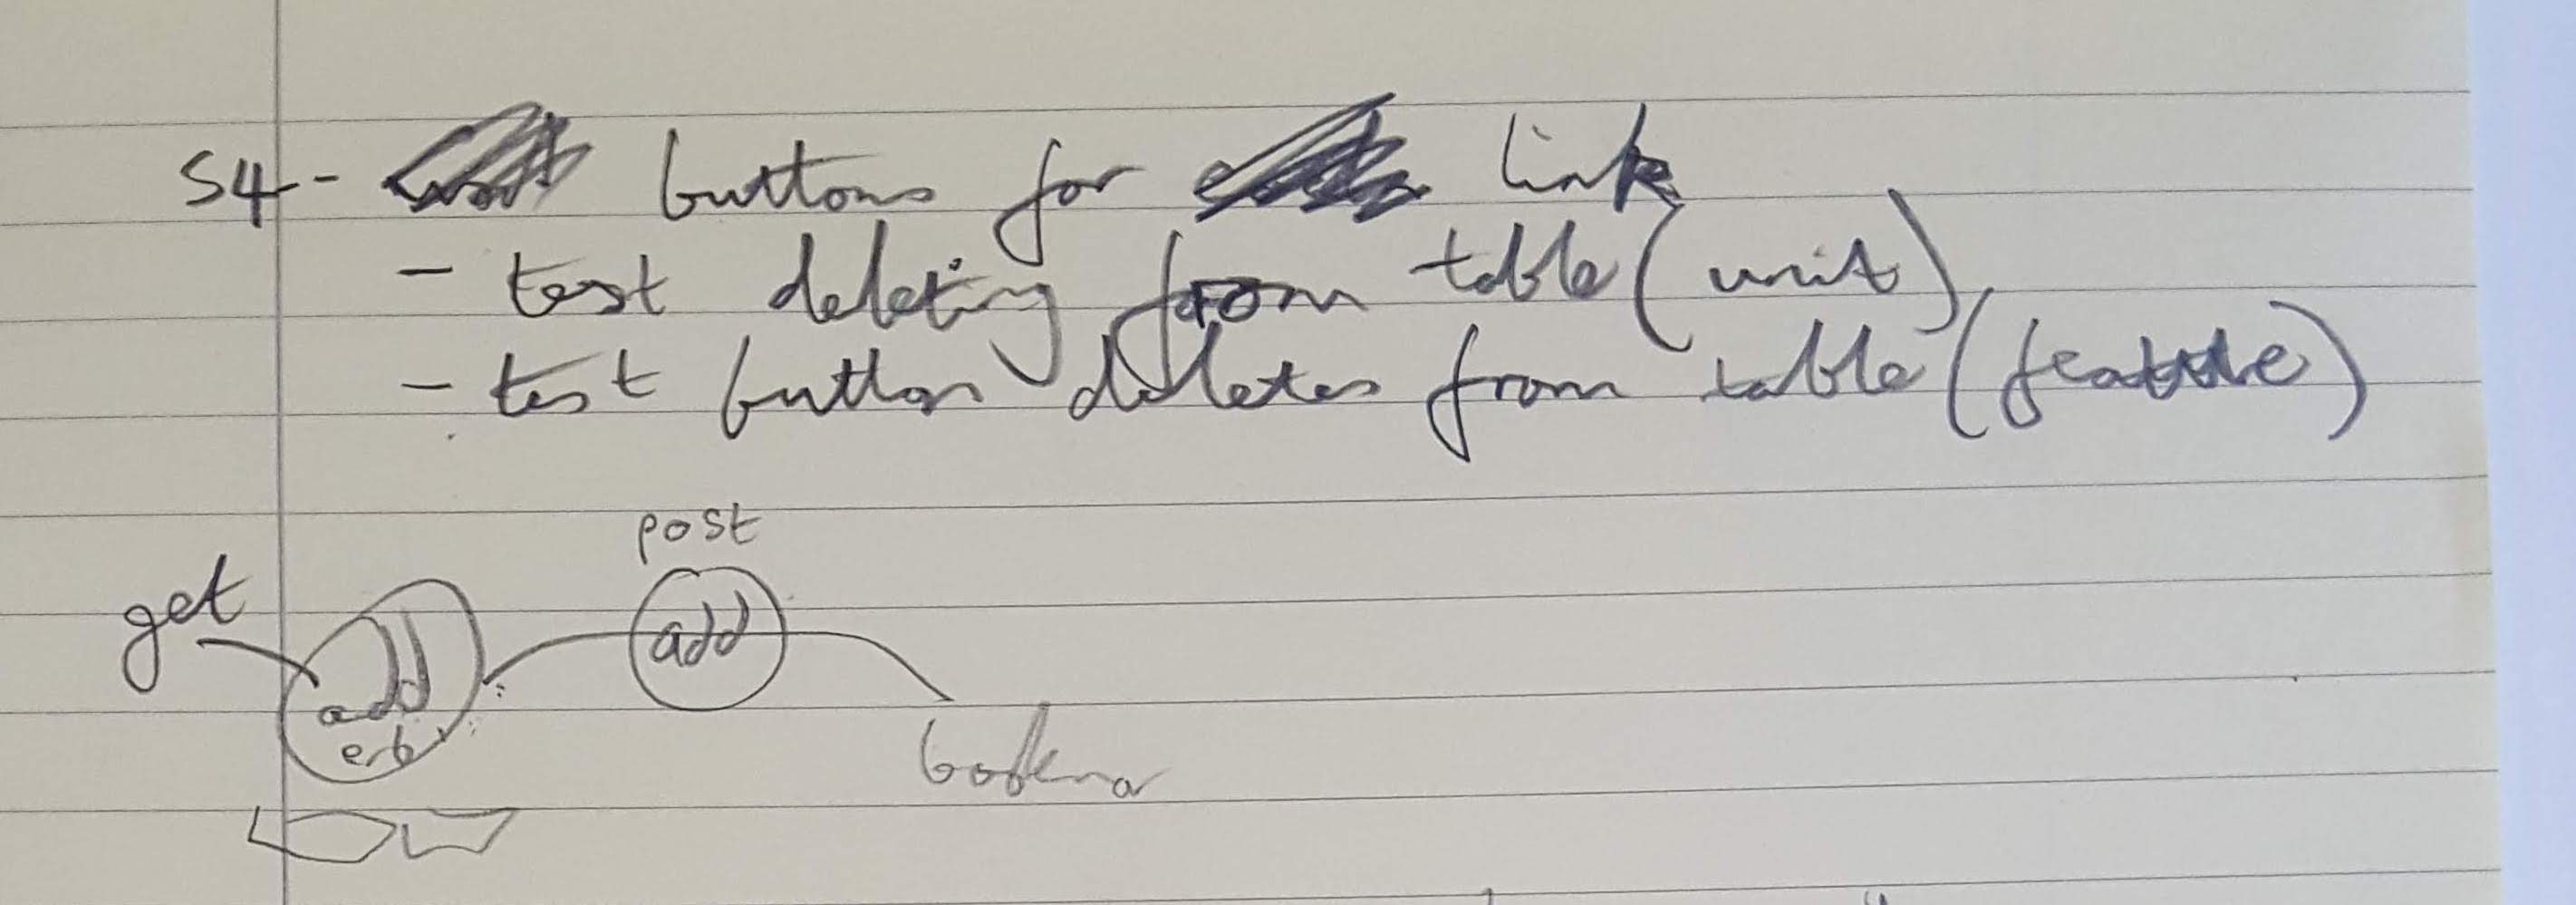 S4 - buttons for link
- test deleting from table (unit)
- test button deletes from table (feature)
post
get
add
add
erb
bookma